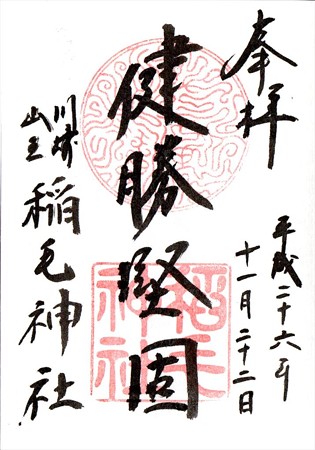 奉拝
平成二十六年
十一月二十二日
健勝堅固
川崎
山王
稲毛神社
稲毛
神社